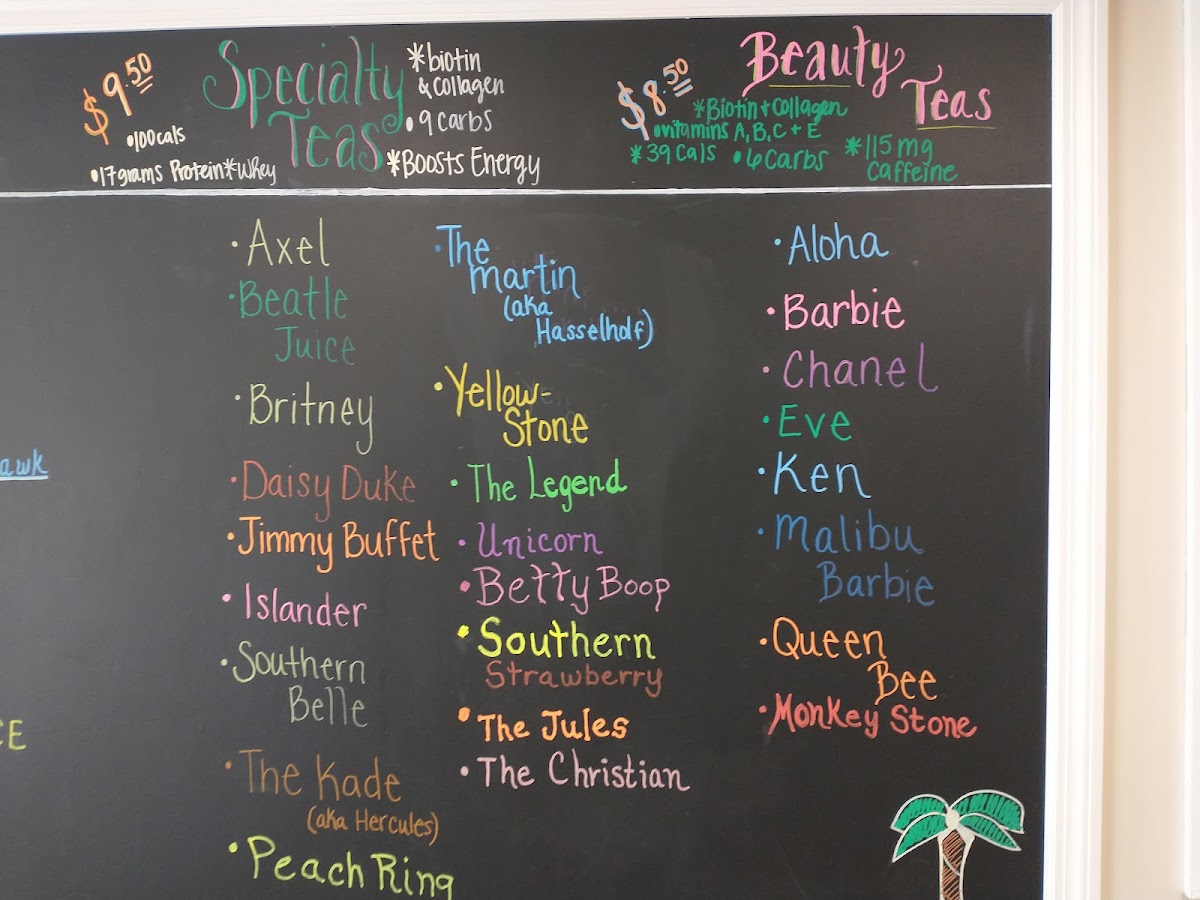 $9.50
•100cals
•17grams Protein*Whey
Specialty
Teas
*biotin
& Collagen
• 9 carbs
*Boosts Energy
$8.50
Beauty
Teas
*Biotin + Collagen
•vitamins A, B, C + E
*39 Cals •6 Carbs
*115mg
Caffeine
•Axel
•Beatle
Juice
•Britney
•Daisy Duke
•Jimmy Buffet
•Islander
•Southern
Belle
•The Kade
(aka Hercules)
•Peach Ring
•The
martin
(aka
Hasselholf)
•Yellow-
Stone
•The Legend
•Unicorn
•Betty Boop
•Southern
Strawberry
•The Jules
•The Christian
•Aloha
•Barbie
•Chanel
•Eve
•Ken
•Malibu
Barbie
•Queen
Bee
•Monkey Stone
awk
CE